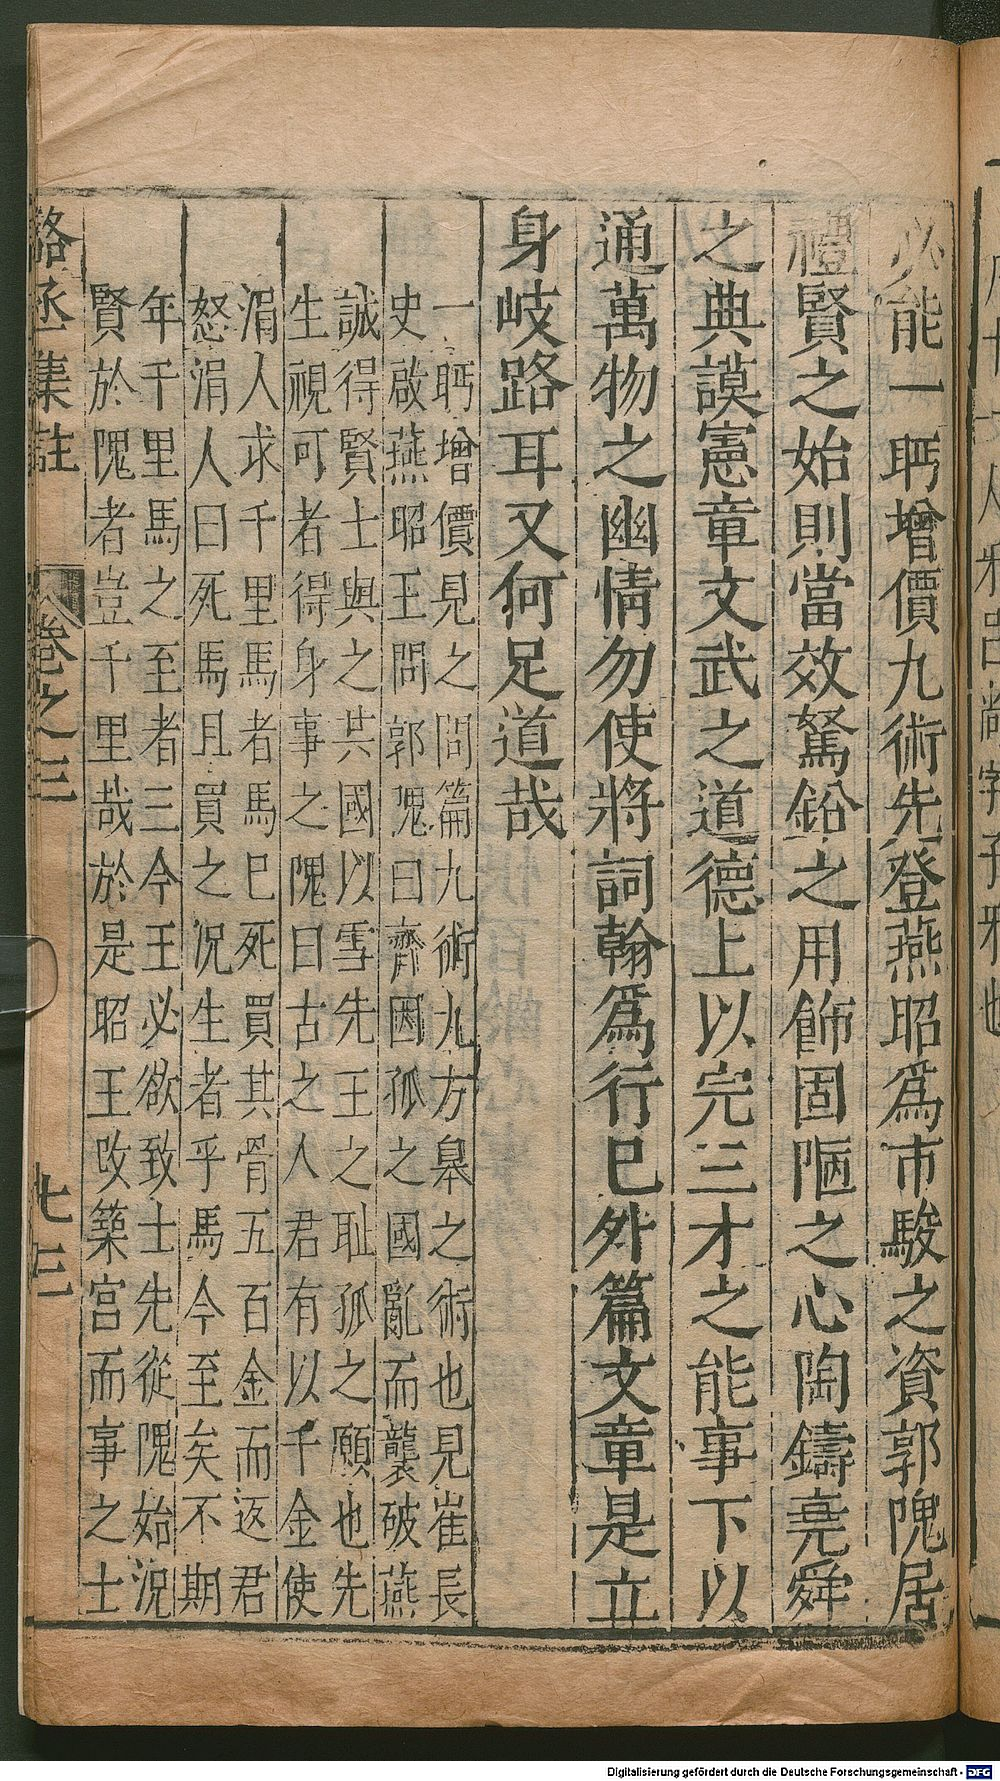 必能一眄增價九術先登燕昭爲市駿之資郭隗居
禮賢之始則當效駑鉛之用飾固陋之心陶鑄堯舜
之典謨憲章文武之道德上以完三才之能事下以
通萬物之幽情勿使將詞翰爲行巳外篇文章是立
身岐路耳又何足道哉
一眄增價見之問篇九術九方臯之術也見崔長
史啟燕昭王問郭隗曰齊因孤之國亂而襲破燕
誠得賢士與之共國以雪先王之耻孤之願也先
生視可者得身事之隗曰古之人君有以千金使
涓人求千里馬者馬巳死買其骨五百金而返君
怒涓人曰死馬且買之况生者乎馬今至矣不期
年千里馬之至者三今王必欲致士先從隗始況
賢於隗者豈千里哉於是昭王改築宫而事之士
駱丞集註 卷之三 七三
Digitalisierung gefördert durch die Deutsche Forschungsgemeinschaft - DFG